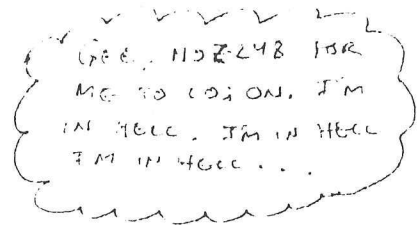 GEE, FOR
ME TO ON. I'M
IN HELL. I'M IN HELL
I'M IN HELL...